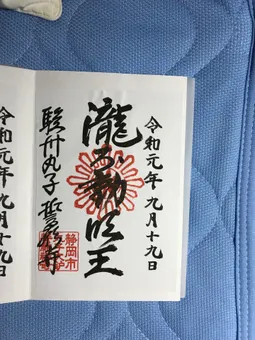 令和元年九月十九日
瀧不動明王
駿州丸子 誓願寺
静岡市
令和元年九月十